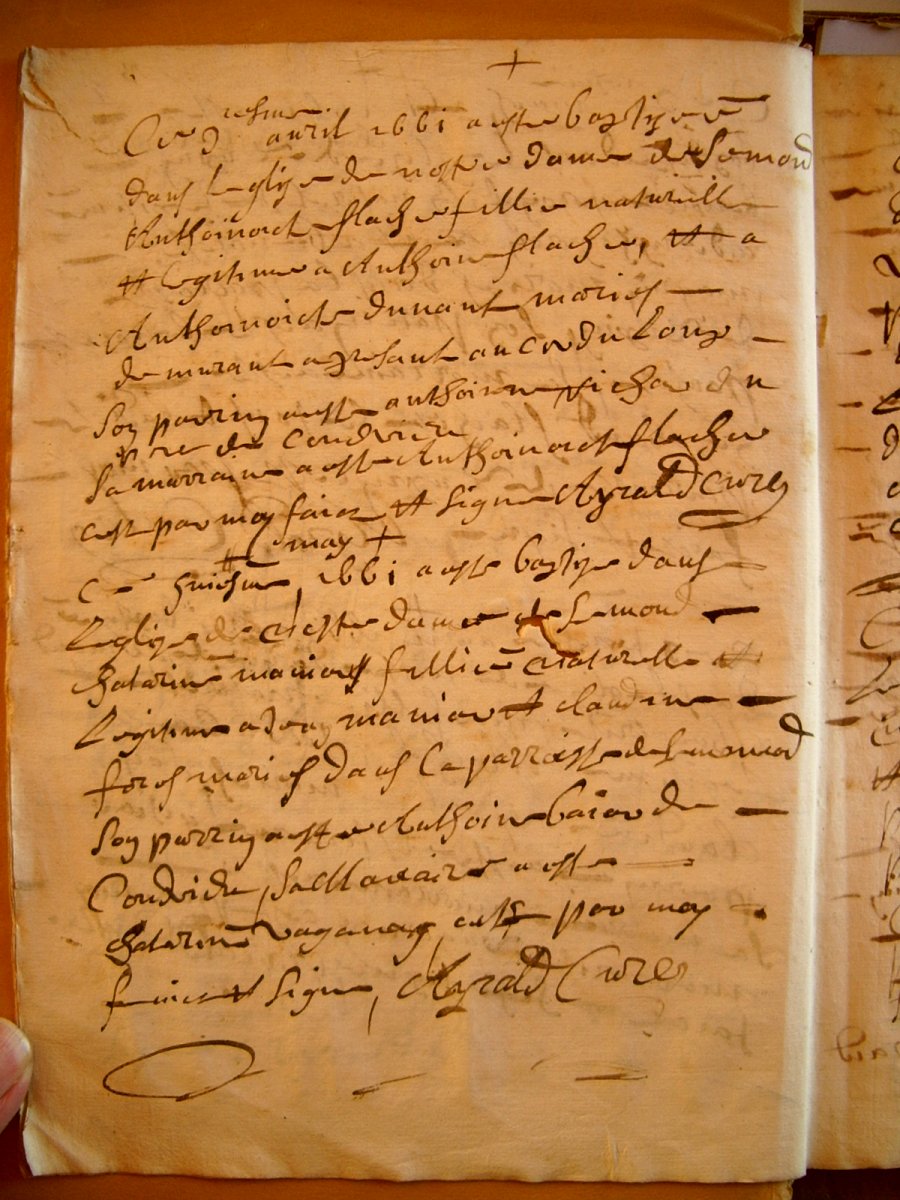 +
Ce 9 iesme auril 1661 a este baptizeé
dans leglize de nostre dame de Semond
Anthoinete flache fillie naturielle
et legitime a Anthoine flache, et a
Anthoinoicte dunant mariés
de murant apresant au
Son parrin a este anthoine du
de Condrieu
Sa marraine a este Anthoinoicte flache
cest par moy faict et signe Ayrald Cure
may +
Ce 1661 a este baptize dans
Leglize de nostre dame de Semond
Chatarine maniar fillie naturelle et
Legitime a Jean maniar et claudine
fores mariés dans la parroisse de Semond
Son parrin a este Anthoine de
Condrieu, sa Maraine a este
Chatarine vaganay, cest par moy
faict et signe, Ayrald Cure